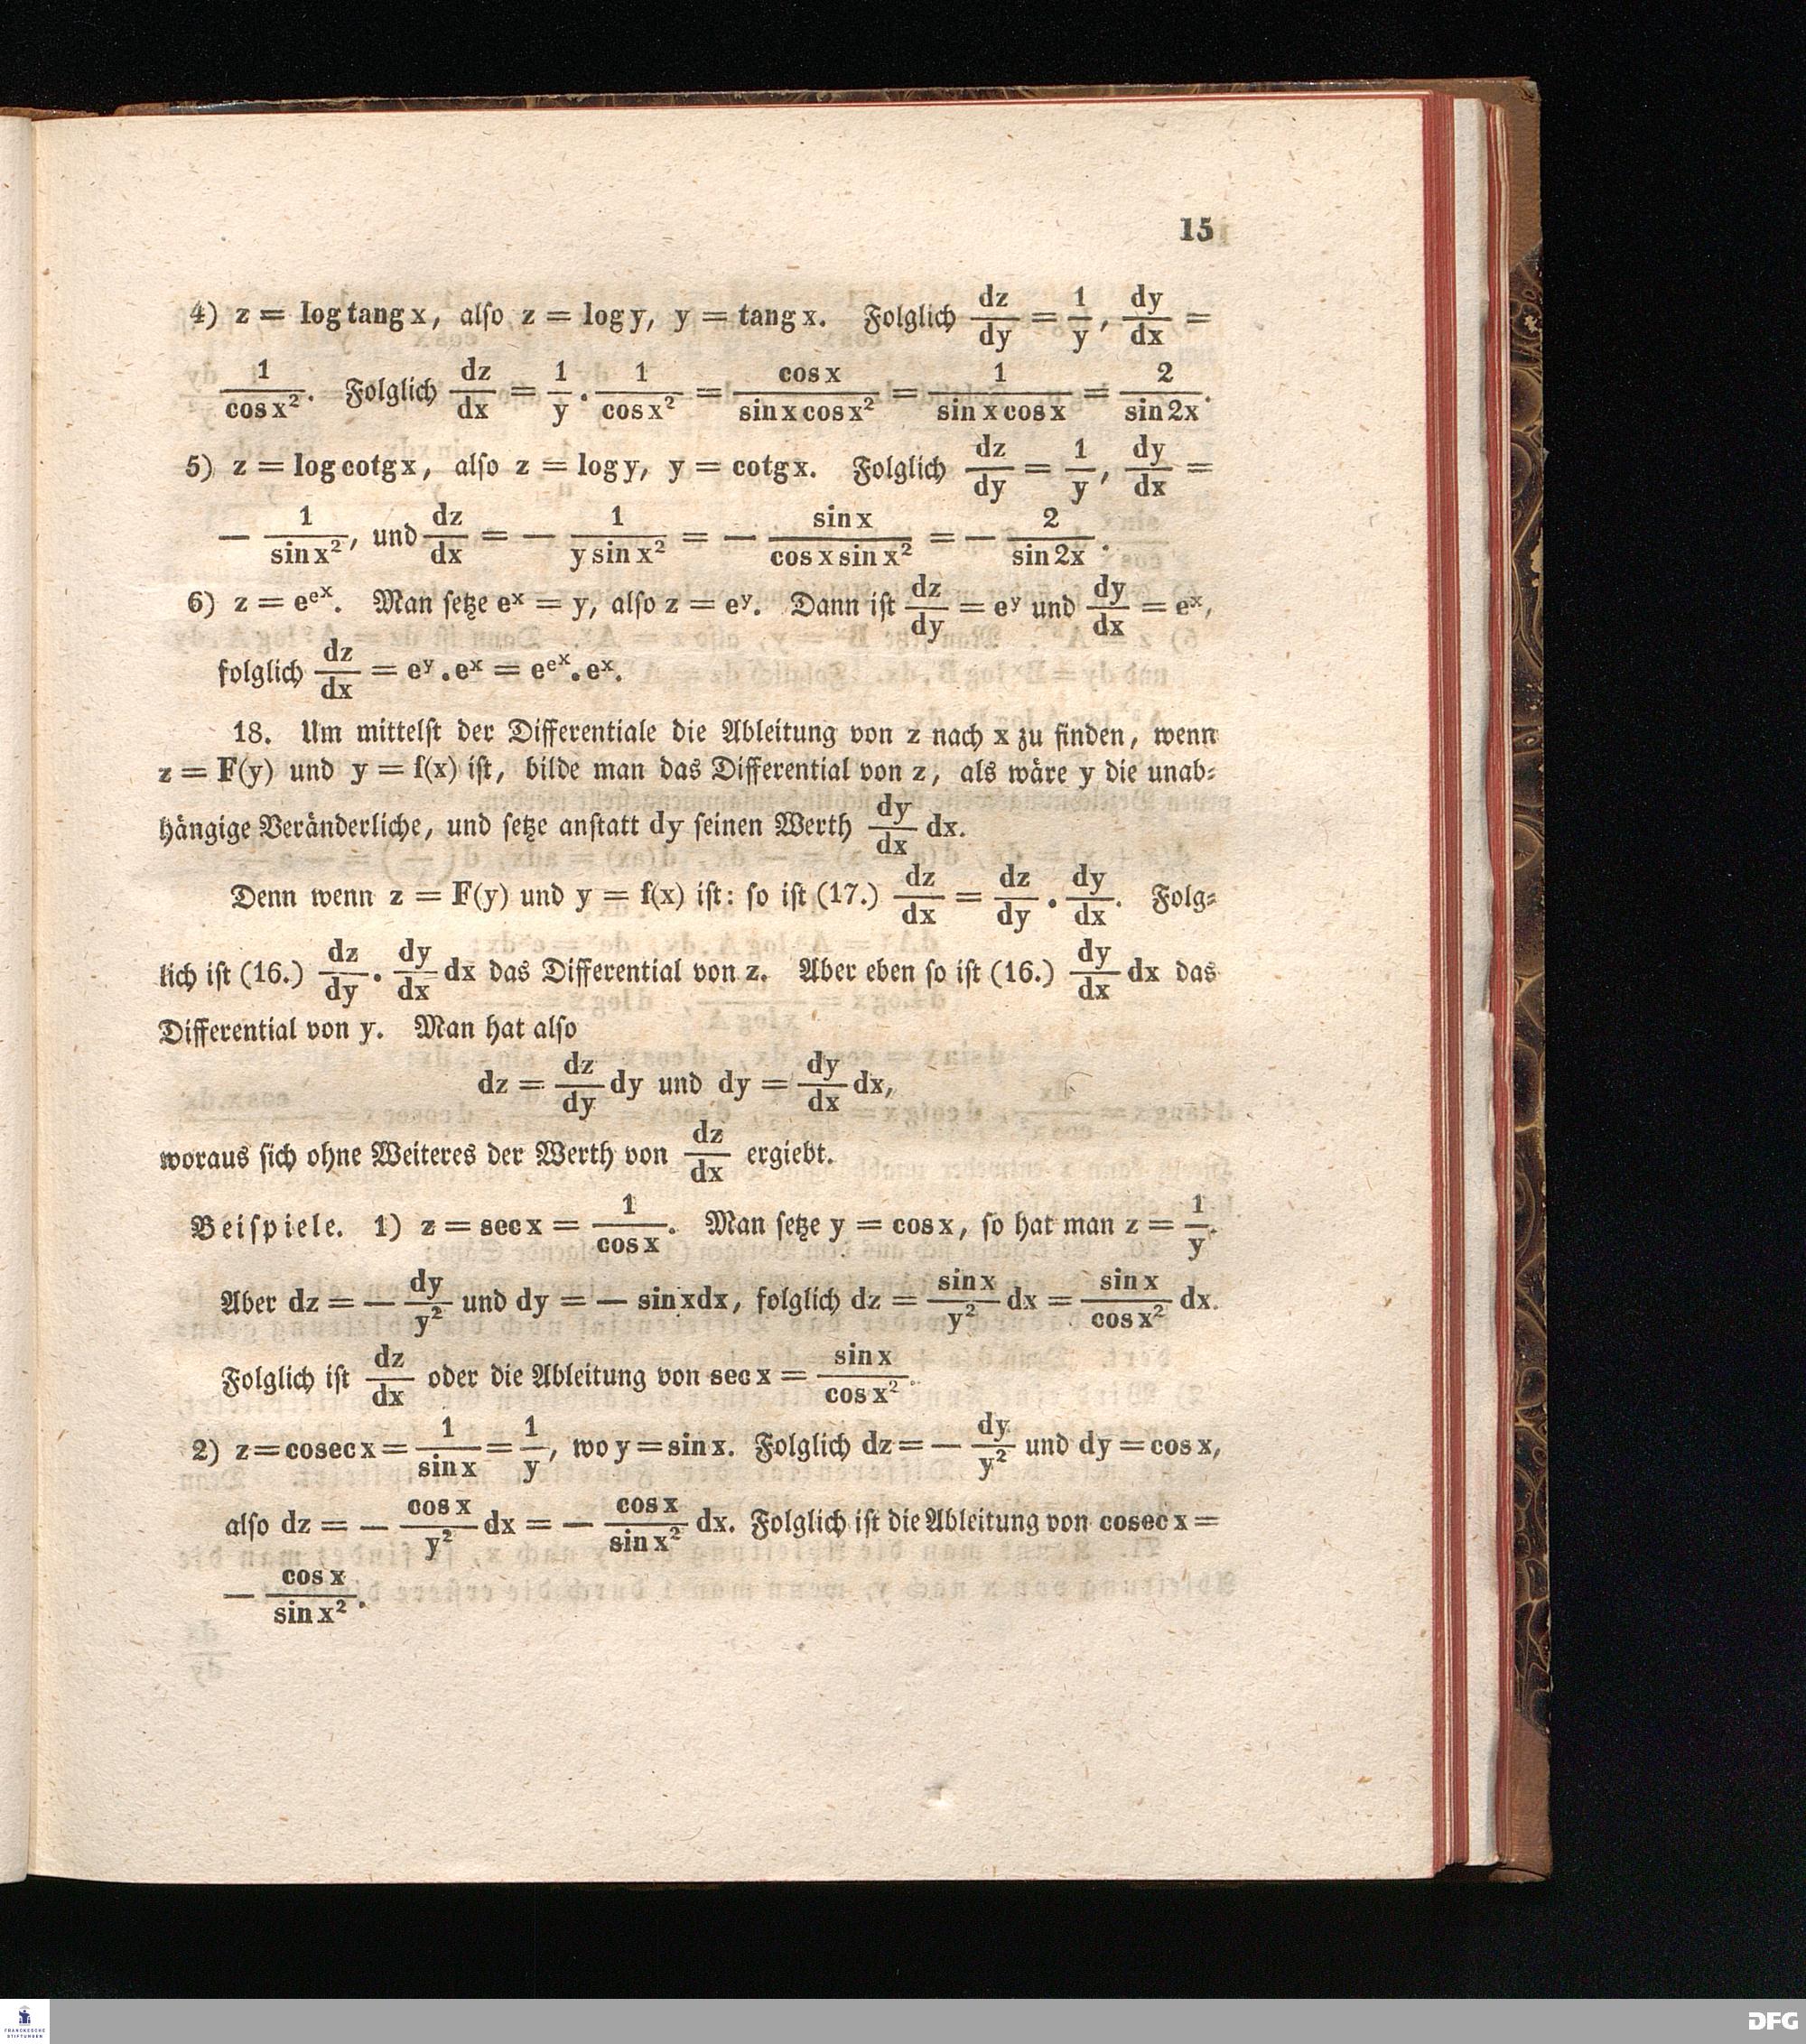 15
4) z = log tang x, alſo z = log y, y = tang x. Folglich dz/dy = 1/y, dy/dx =
1/cos x². Folglich dz/dx = 1/y . 1/cos x² = cos x/sin x cos x² = 1/sin x cos x = 2/sin 2x.
5) z = log cotg x, alſo z = log y, y = cotg x. Folglich dz/dy = 1/y, dy/dx =
— 1/sin x², und dz/dx = — 1/y sin x² = — sin x/cos x sin x² = — 2/sin 2x.
6) z = e^{e^x}. Man ſetze e^x = y, alſo z = e^y. Dann iſt dz/dy = e^y und dy/dx = e^x,
folglich dz/dx = e^y . e^x = e^{e^x} . e^x.
18. Um mittelſt der Differentiale die Ableitung von z nach x zu finden, wenn
z = F(y) und y = f(x) iſt, bilde man das Differential von z, als wäre y die unab⸗
hängige Veränderliche, und ſetze anſtatt dy ſeinen Werth dy/dx dx.
Denn wenn z = F(y) und y = f(x) iſt: ſo iſt (17.) dz/dx = dz/dy . dy/dx. Folg⸗
lich iſt (16.) dz/dy . dy/dx dx das Differential von z. Aber eben ſo iſt (16.) dy/dx dx das
Differential von y. Man hat alſo
dz = dz/dy dy und dy = dy/dx dx,
woraus ſich ohne Weiteres der Werth von dz/dx ergiebt.
Beiſpiele. 1) z = sec x = 1/cos x. Man ſetze y = cos x, ſo hat man z = 1/y.
Aber dz = — dy/y² und dy = — sin x dx, folglich dz = sin x/y² dx = sin x/cos x² dx.
Folglich iſt dz/dx oder die Ableitung von sec x = sin x/cos x².
2) z = cosec x = 1/sin x = 1/y, wo y = sin x. Folglich dz = — dy/y² und dy = cos x,
alſo dz = — cos x/y² dx = — cos x/sin x² dx. Folglich iſt die Ableitung von cosec x =
— cos x/sin x².
FRANCKESCHE
STIFTUNGEN
DFG